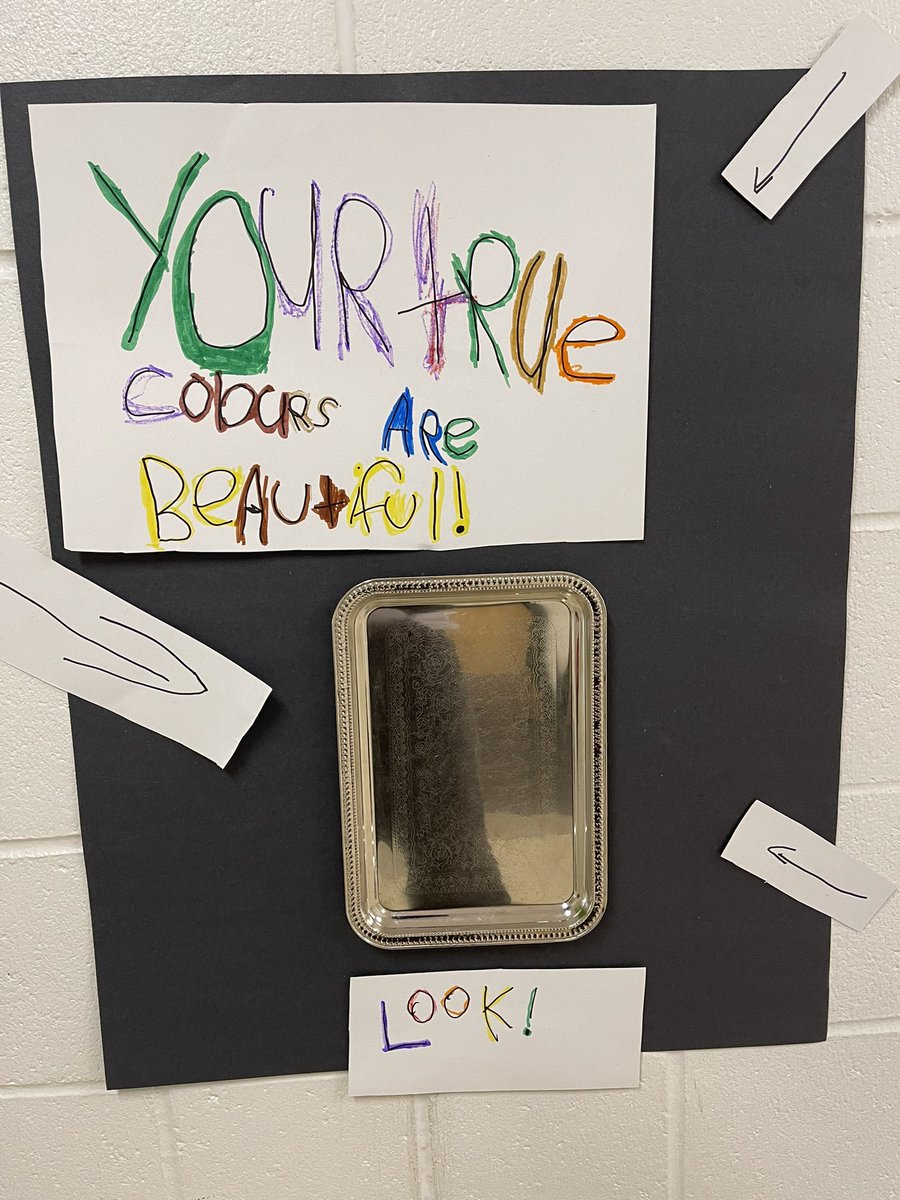 YOUR tRUe
COlOURS ARe
BeAUtifUl!
LOOK!